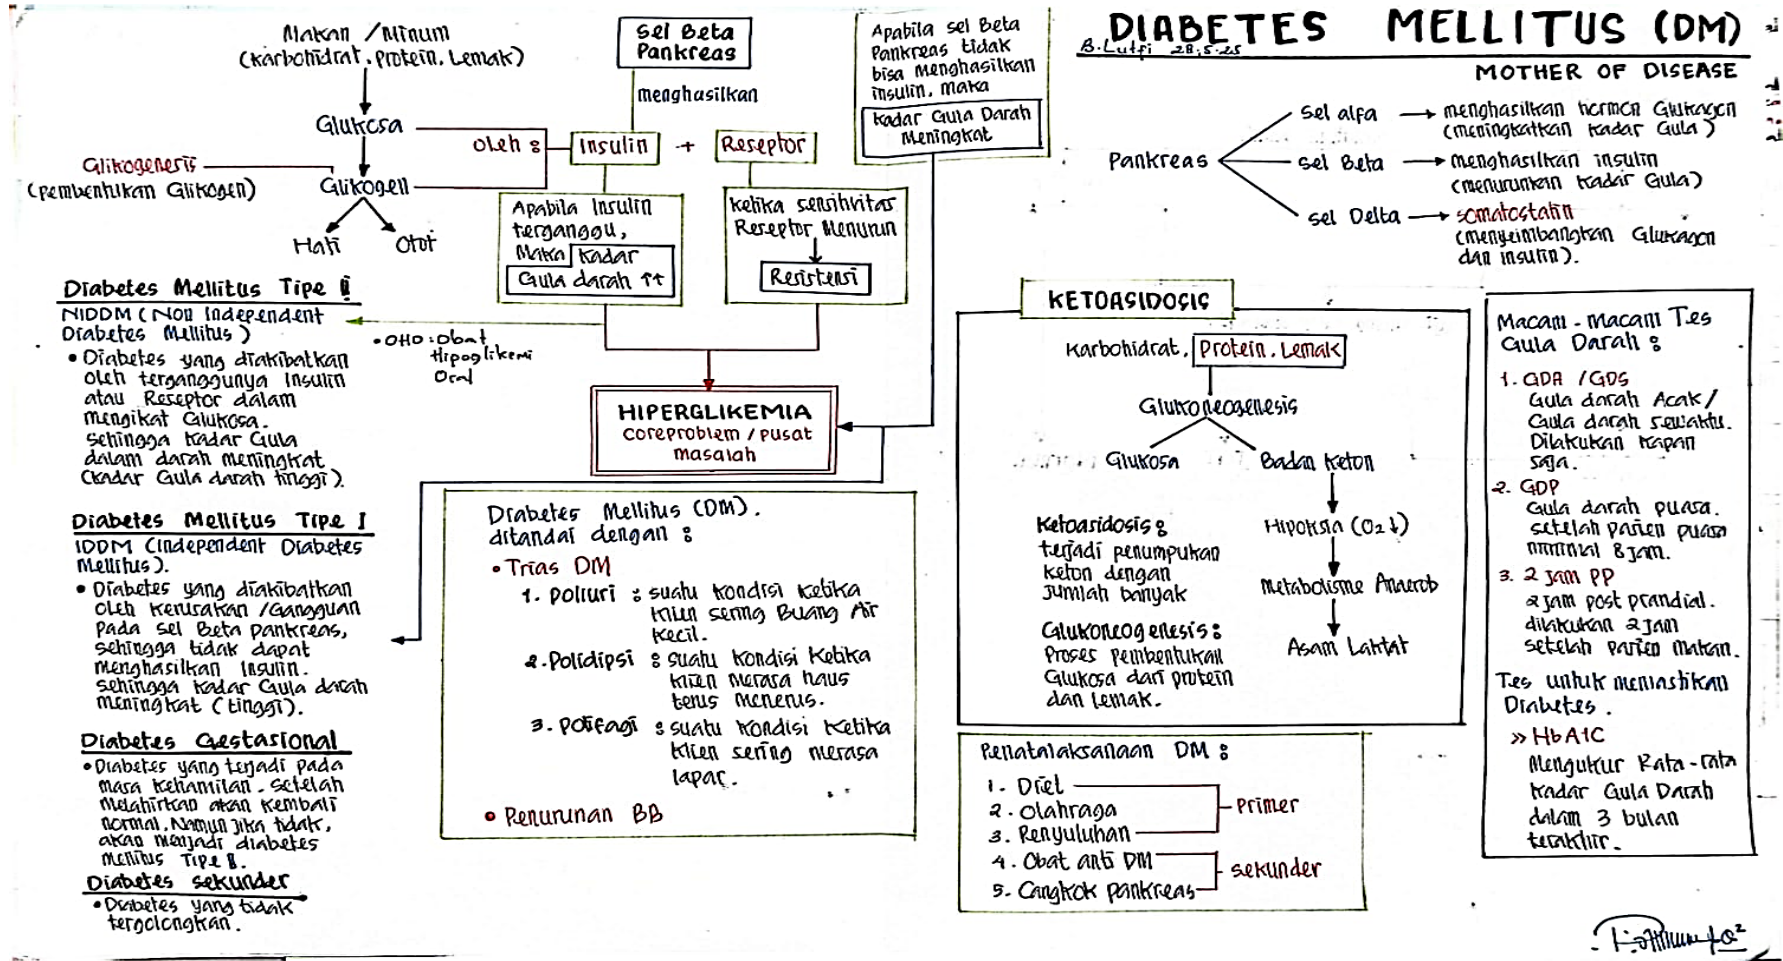 DIABETES MELLITUS (DM)
B. Lutfi 28.5.25
MOTHER OF DISEASE
Makan / Minum
(Karbohidrat, Protein, Lemak)
Glukosa
Glikogenesis
(pembentukan Glikogen)
Glikogen
Hati
Otot
oleh :
Sel Beta
Pankreas
menghasilkan
Insulin
+
Reseptor
Apabila Insulin
terganggu,
Maka Kadar
Gula darah ↑↑
Ketika sensitivitas
Reseptor Menurun
Resistensi
Apabila sel Beta
Pankreas tidak
bisa menghasilkan
insulin, maka
Kadar Gula Darah
Meningkat
Pankreas
sel alfa
menghasilkan hormon Glukagon
(meningkatkan Kadar Gula)
sel Beta
menghasilkan insulin
(menurunkan Kadar Gula)
sel Delta
somatostatin
(menyeimbangkan Glukagon
dan insulin).
Diabetes Mellitus Tipe II
NIDDM (Non Independent
Diabetes Mellitus)
• Diabetes yang diakibatkan
oleh terganggunya Insulin
atau Reseptor dalam
mengikat Glukosa.
sehingga Kadar Gula
dalam darah meningkat
(Kadar Gula darah tinggi).
• OHO : Obat
Hipoglikemi
Oral
HIPERGLIKEMIA
coreproblem / pusat
masalah
Diabetes Mellitus Tipe I
IDDM (Independent Diabetes
Mellitus).
• Diabetes yang diakibatkan
oleh Kerusakan / Gangguan
pada sel Beta pankreas,
sehingga tidak dapat
menghasilkan Insulin.
sehingga Kadar Gula darah
meningkat (tinggi).
Diabetes Gestasional
• Diabetes yang terjadi pada
masa kehamilan. setelah
Melahirkan akan Kembali
normal, Namun jika tidak,
akan menjadi diabetes
mellitus Tipe II.
Diabetes sekunder
• Diabetes yang tidak
tergolongkan.
Diabetes Mellitus (DM).
ditandai dengan :
• Trias DM
1. Poliuri : suatu kondisi Ketika
klien sering Buang Air
Kecil.
2. Polidipsi : suatu kondisi Ketika
klien merasa haus
terus menerus.
3. Polifagi : suatu kondisi Ketika
klien sering merasa
lapar.
• Penurunan BB
KETOASIDOSIS
Karbohidrat, Protein, Lemak
Glukoneogenesis
Glukosa
Badan Keton
Hipoksia (O2↓)
Metabolisme Anaerob
Asam Laktat
Ketoasidosis :
terjadi penumpukan
Keton dengan
Jumlah banyak
Glukoneogenesis :
Proses pembentukan
Glukosa dari protein
dan Lemak.
Penatalaksanaan DM :
1. Diet
2. Olahraga
3. Penyuluhan
primer
4. Obat anti DM
5. Cangkok pankreas
sekunder
Macam - Macam Tes
Gula Darah :
1. GDA / GDS
Gula darah Acak /
Gula darah sewaktu.
Dilakukan kapan
saja.
2. GDP
Gula darah puasa.
setelah pasien puasa
minimal 8 jam.
3. 2 jam PP
2 jam post prandial.
dilakukan 2 jam
setelah pasien makan.
Tes untuk memastikan
Diabetes.
» HbA1C
Mengukur Rata-rata
Kadar Gula Darah
dalam 3 bulan
terakhir.